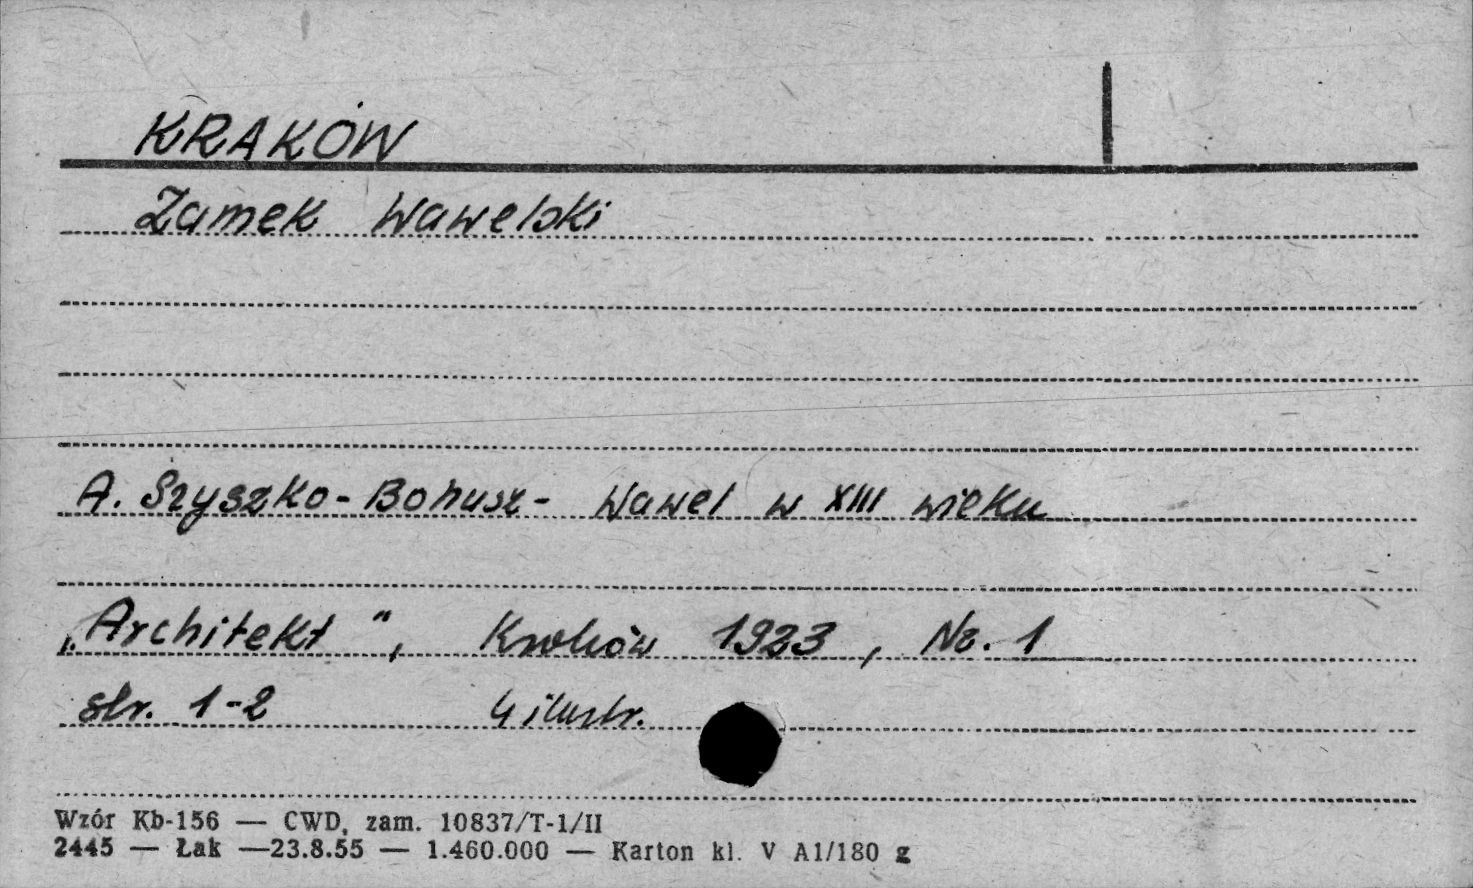 KRAKÓW
Zamek Wawelski
A. Szyszko-Bohusz - Wawel w XIII wieku
„Architekt", Kraków 1923, Nr. 1
str. 1-2 4 ilustr.
Wzór Kb-156 — CWD, zam. 10837/T-1/II
2445 — Łak —23.8.55 — 1.460.000 — Karton kl. V A1/180 g